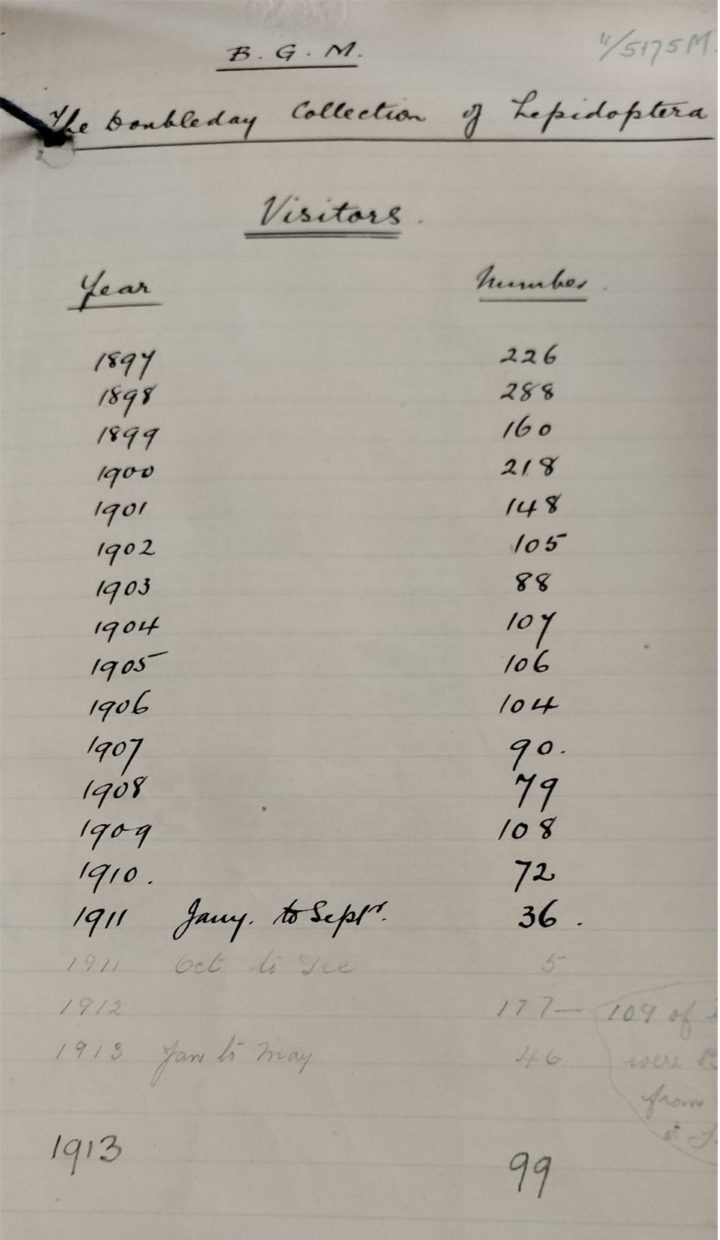 B. G. M.
11/5175M.
The Doubleday Collection of Lepidoptera
Visitors.
Year Number.
1897 226
1898 288
1899 160
1900 218
1901 148
1902 105
1903 88
1904 107
1905 106
1906 104
1907 90.
1908 79
1909 108
1910. 72
1911 Jany. to Septr. 36.
1911 Oct to Dec 5
1912 177— 109 of
1913 Jan to May 46 were
from
1913 99